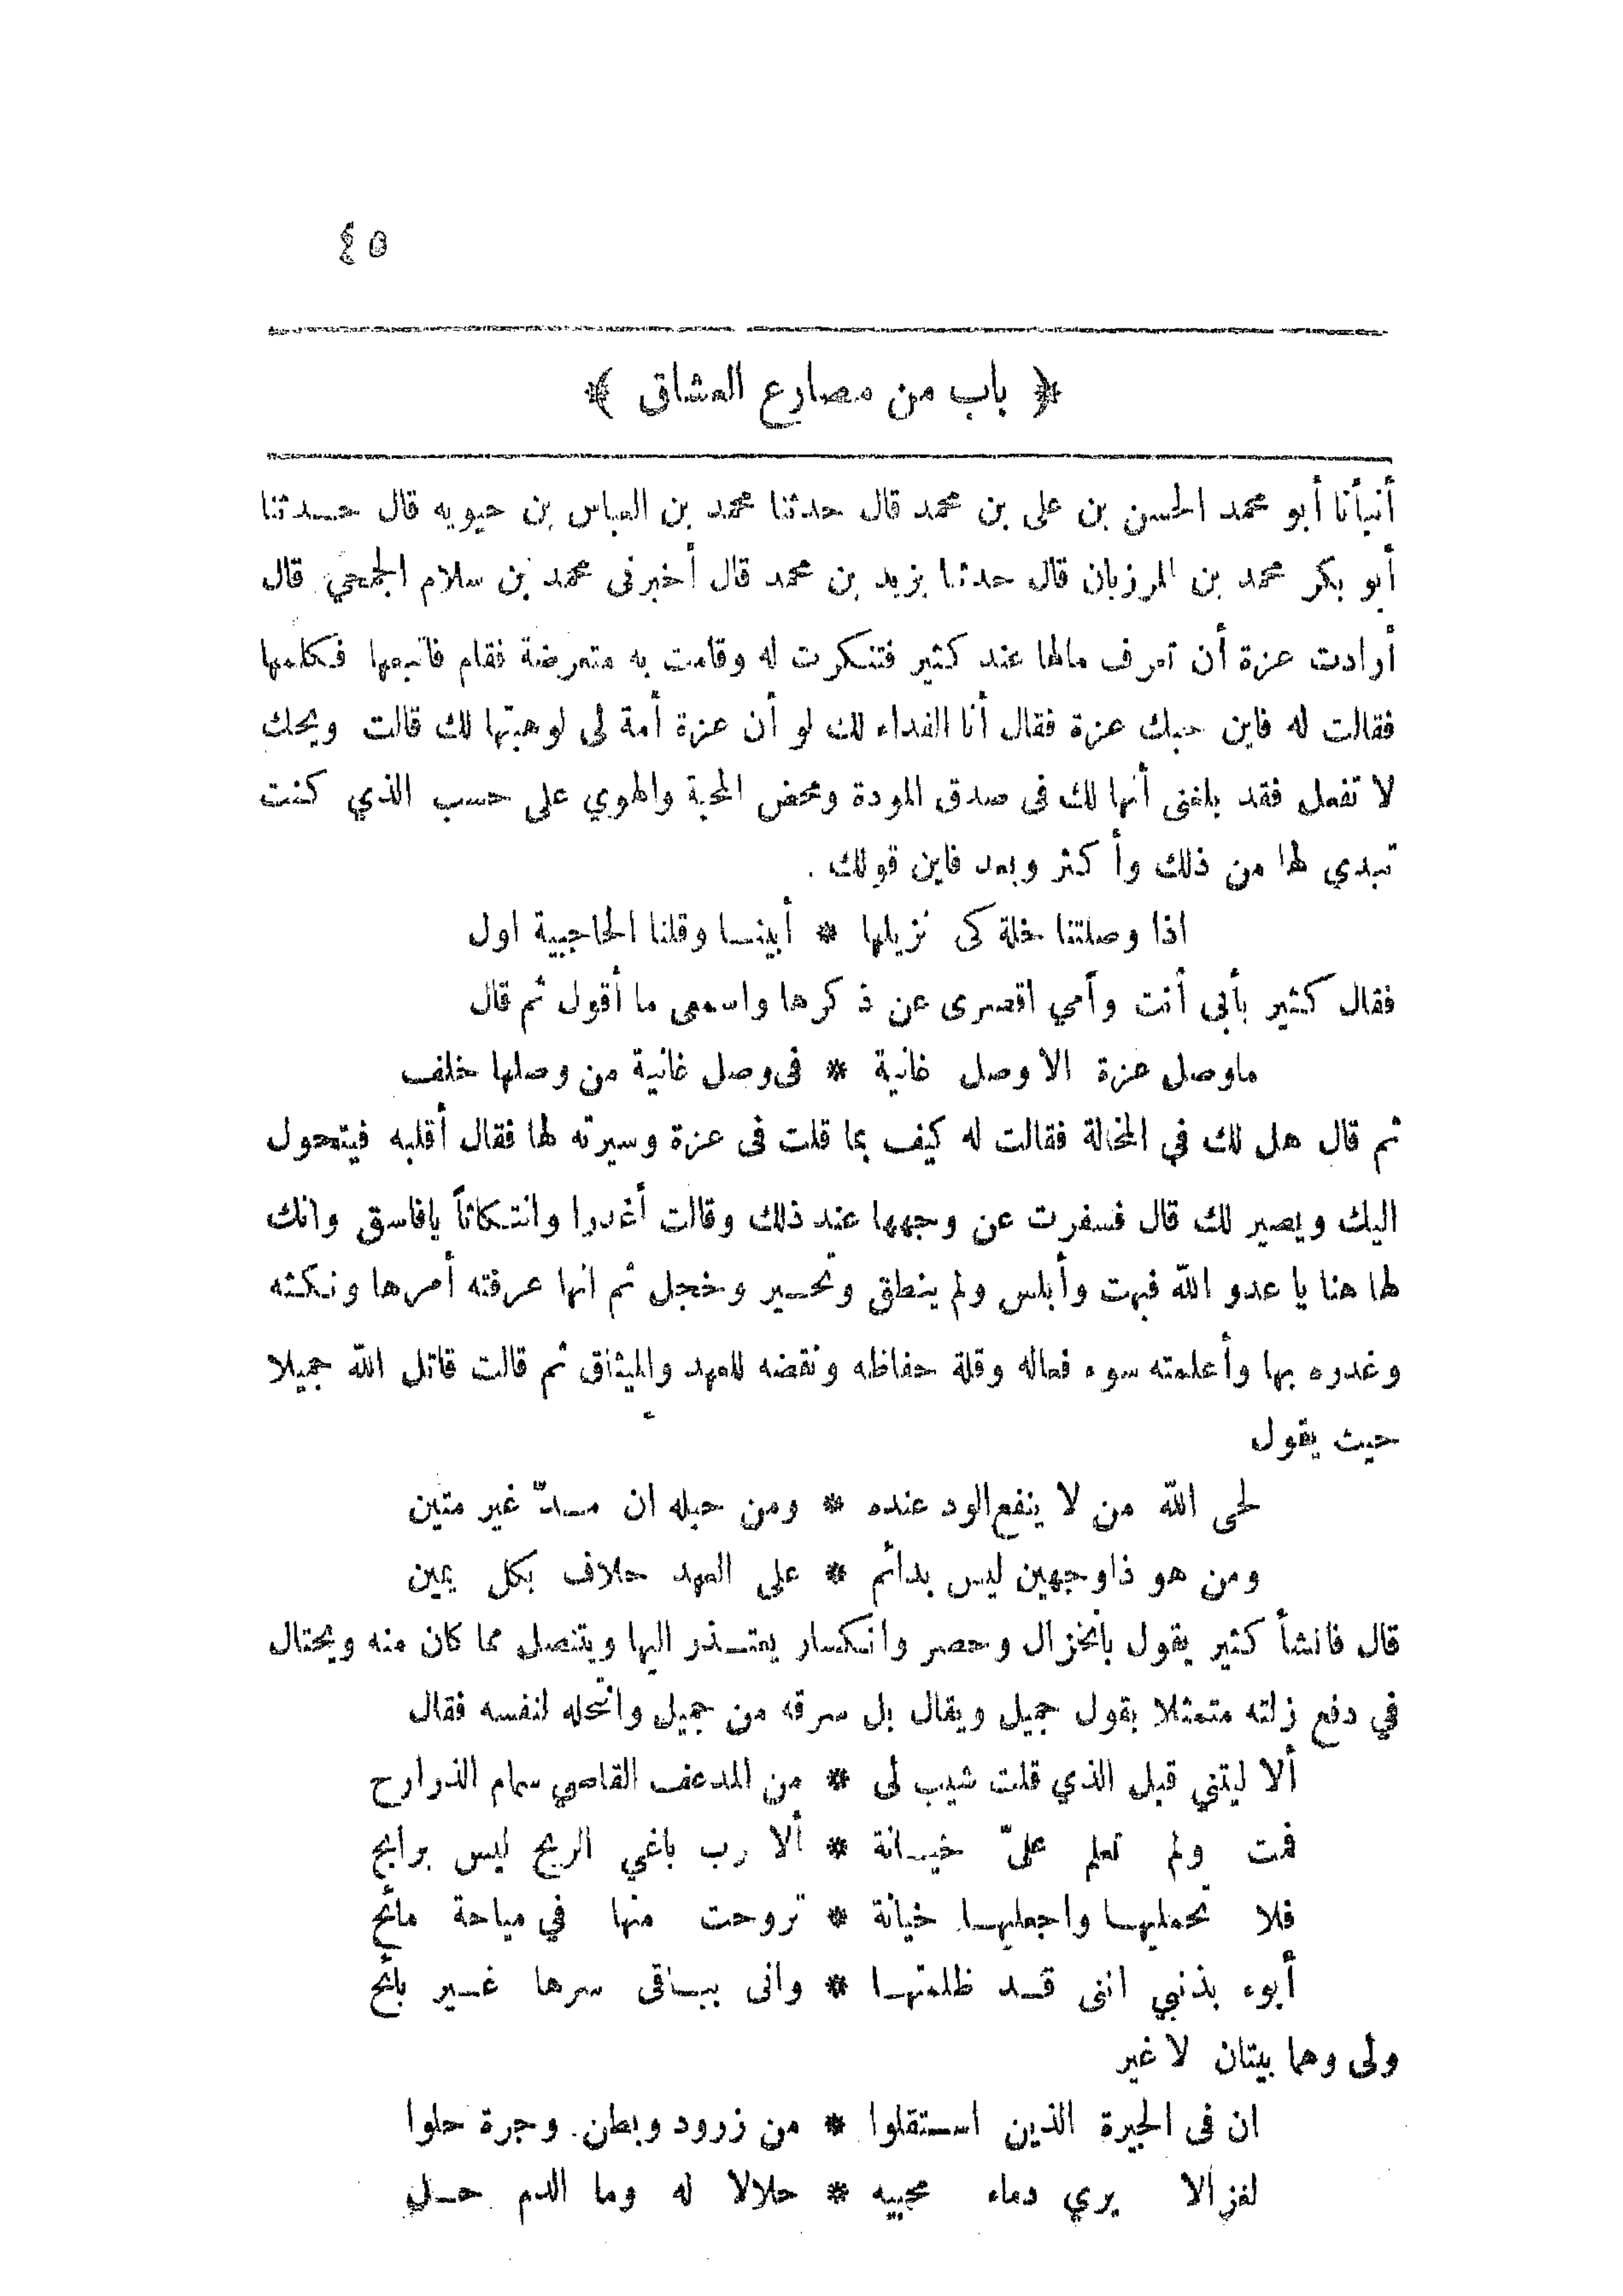 ٤٥
﴿ باب من مصارع العشاق ﴾
أنبأنا أبو محمد الحسن بن على بن محمد قال حدثنا محمد بن العباس بن حيويه قال حدثنا
أبو بكر محمد بن المرزبان قال حدثنا يزيد بن محمد قال أخبرنى محمد بن سلام الجمحي قال
أرادت عزة أن تعرف مالها عند كثير فتنكرت له وقامت به متعرضة فقام فاتبعها فكلمها
فقالت له فاين حبك عزة فقال أنا الفداء لك لو أن عزة أمة لى لوهبتها لك قالت ويحك
لا تفعل فقد بلغنى أنها لك فى صدق المودة ومحض المحبة والهوي على حسب الذي كنت
تبدي لها من ذلك وأكثر وبعد فاين قولك .
اذا وصلتنا خلة كى نزيلها * أبينا وقلنا الحاجبية اول
فقال كثير بأبى أنت وأمي اقصرى عن ذكرها واسمعى ما أقول ثم قال
ماوصل عزة الا وصل غانية * فى وصل غانية من وصلها خلف
ثم قال هل لك في المخالة فقالت له كيف بما قلت فى عزة وسيرته لها فقال أقلبه فيتحول
اليك ويصير لك قال فسفرت عن وجهها عند ذلك وقالت أغدرا وانتكاثاً يافاسق وانك
لها هنا يا عدو الله فبهت وأبلس ولم ينطق وتحير وخجل ثم انها عرفته أمرها ونكثه
وغدره بها وأعلمته سوء فعاله وقلة حفاظه ونقضه للعهد والميثاق ثم قالت قاتل الله جميلا
حيث يقول
لحى الله من لا ينفع الود عنده * ومن حبله ان مدّ غير متين
ومن هو ذاوجهين ليس بدائم * على العهد حلاف بكل يمين
قال فانشأ كثير يقول بانخزال وحصر وانكسار يعتذر اليها ويتنصل مما كان منه ويحتال
في دفع زلته متمثلا بقول جميل ويقال بل سرقه من جميل وانتحله لنفسه فقال
ألا ليتني قبل الذي قلت شيب لى * من المدعف القاضي سمام الذرارح
فمت ولم تعلم علىّ خيانة * ألا رب باغي الربح ليس برابح
فلا تحمليها واجعليها خيانة * تروحت منها في مياحة مائح
أبوء بذنبي اننى قد ظلمتها * وانى بباقى سرها غير بائح
ولى وهما بيتان لا غير
ان فى الجيرة الذين استقلوا * من زرود وبطن وجرة حلوا
لغزالا يري دماء محبيه * حلالا له وما الدم حل